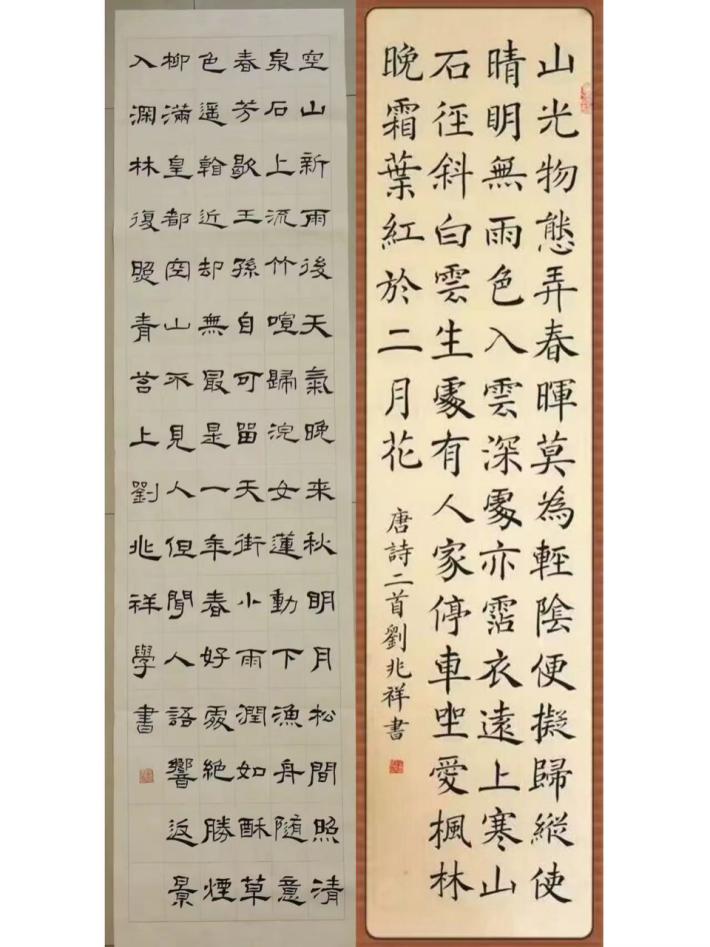 山光物態弄春暉莫為輕陰便擬歸縱使
晴明無雨色入雲深處亦霑衣遠上寒山
石径斜白雲生處有人家停車坐愛楓林
晚霜葉紅於二月花
唐詩二首劉兆祥書
空山新雨後天氣晚来秋明月松間照清
泉石上流竹喧歸浣女蓮動下漁舟随意
春芳歇王孫自可留天街小雨潤如酥草
色遥看近却無最是一年春好處絶勝煙
柳滿皇都空山不見人但聞人語響返景
入深林復照青苔上劉兆祥學書